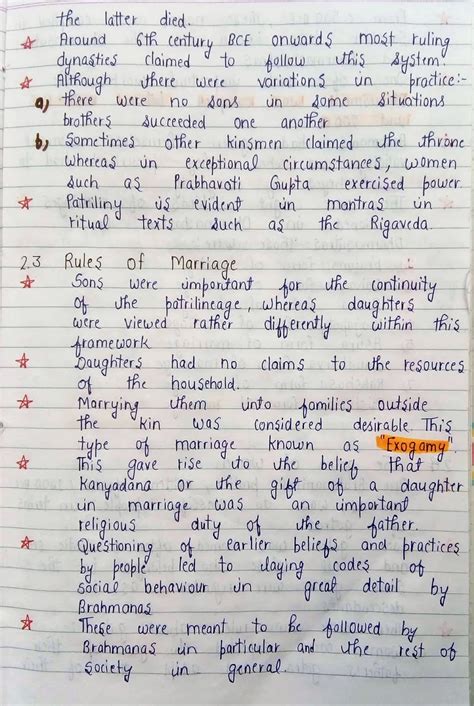 the latter died.
☆ Around 6th century BCE onwards most ruling
dynasties claimed to follow this system.
☆ Although there were variations in practice:-
a) there were no sons in some situations
brothers succeeded one another
b) Sometimes other kinsmen claimed the throne
whereas in exceptional circumstances, women
such as Prabhavati Gupta exercised power.
☆ Patriliny is evident in mantras in
ritual texts such as the Rigaveda.
2.3 Rules of Marriage
☆ Sons were important for the continuity
of the patrilineage, whereas daughters
were viewed rather differently within this
framework
☆ Daughters had no claims to the resources
of the household.
☆ Marrying them into families outside
the kin was considered desirable. This
type of marriage known as "Exogamy".
☆ This gave rise to the belief that
Kanyadana or the gift of a daughter
in marriage was an important
religious duty of the father.
☆ Questioning of earlier beliefs and practices
by people led to laying codes of
social behaviour in great detail by
Brahmanas
☆ These were meant to be followed by
Brahmanas in particular and the rest of
society in general.